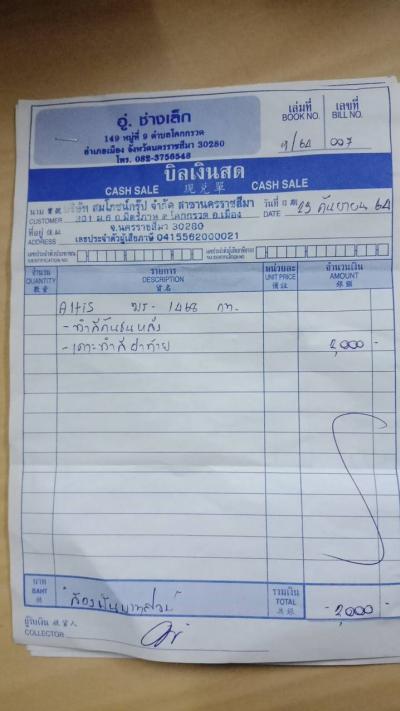 อู่ ช่างเล็ก
149 หมู่ที่ 9 ตำบลโคกกรวด
อำเภอเมือง จังหวัดนครราชสีมา 30280
โทร. 082-3756548
เล่มที่ เลขที่
BOOK NO. BILL NO.
9/64 007
บิลเงินสด
CASH SALE 現兌單 CASH SALE
นาม บริษัท สมโภชน์กรุ๊ป จำกัด สาขานครราชสีมา วันที่
CUSTOMER 301 ม.6 ถ.มิตรภาพ ต.โคกกรวด อ.เมือง DATE 23 กันยายน 64
ที่อยู่ จ.นครราชสีมา 30280
ADDRESS เลขประจำตัวผู้เสียภาษี 0415562000021
จำนวน รายการ หน่วยละ จำนวนเงิน
QUANTITY DESCRIPTION UNIT PRICE AMOUNT
數量 貨名 價錢 銀額
Altis 1468 กท.
- ทำสีกันชนหลัง
- เคาะทำสีฝาท้าย 2,000 -
บาท รวมเงิน
BAHT "สองพันบาทถ้วน" TOTAL - 2,000 -
ผู้รับเงิน
COLLECTOR